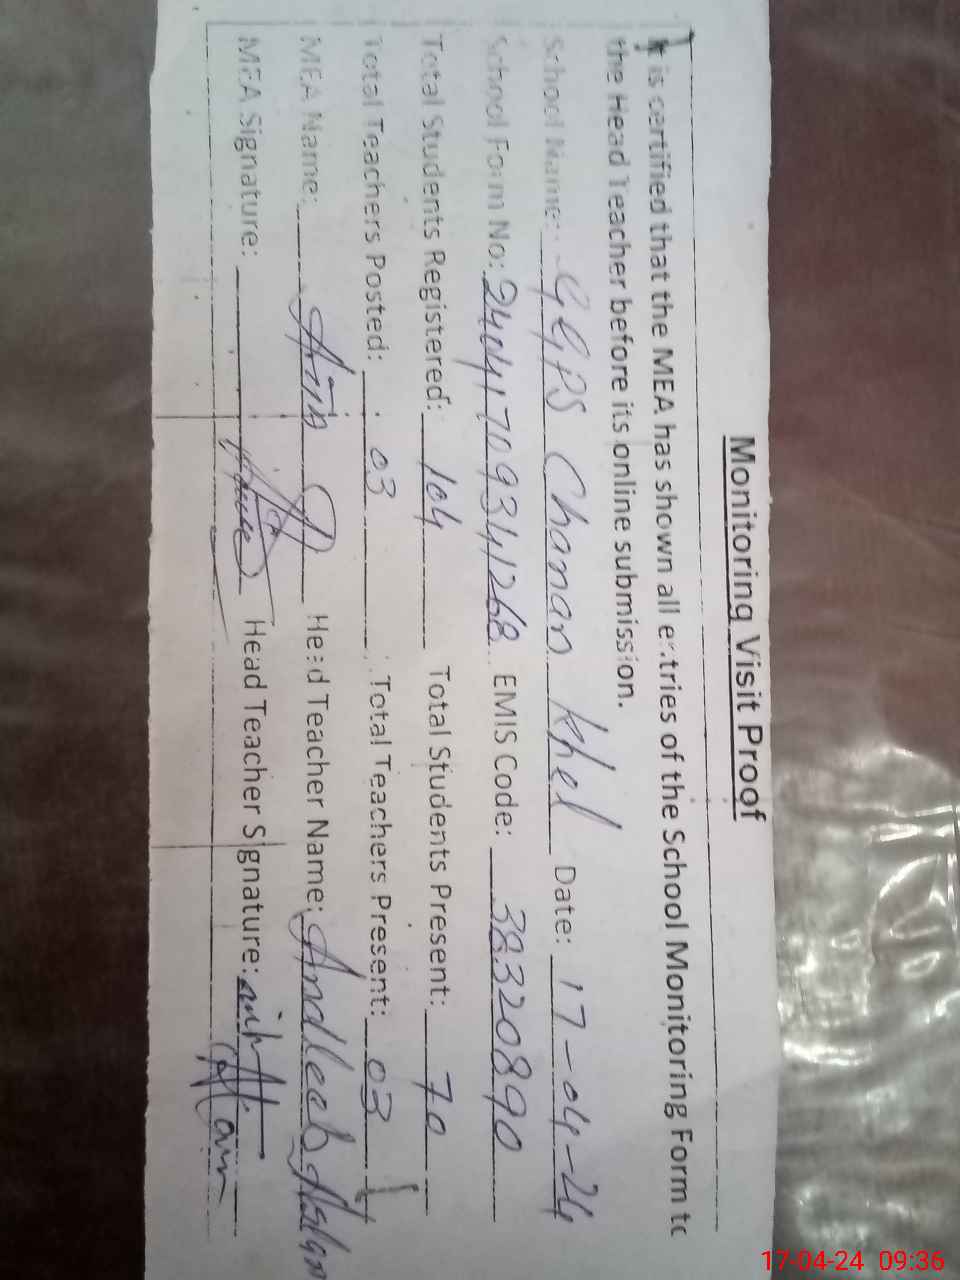 Monitoring Visit Proof
It is certified that the MEA has shown all entries of the School Monitoring Form to
the Head Teacher before its online submission.
School Name: GGPS Chanan Khel Date: 17-04-24
School Form No: 2404170934126 EMIS Code: 38320890
Total Students Registered: 104 Total Students Present: 70
Total Teachers Posted: 03 Total Teachers Present: 03
MEA Name: Head Teacher Name: Andleeb
MEA Signature: Head Teacher Signature:
17-04-24 09:36